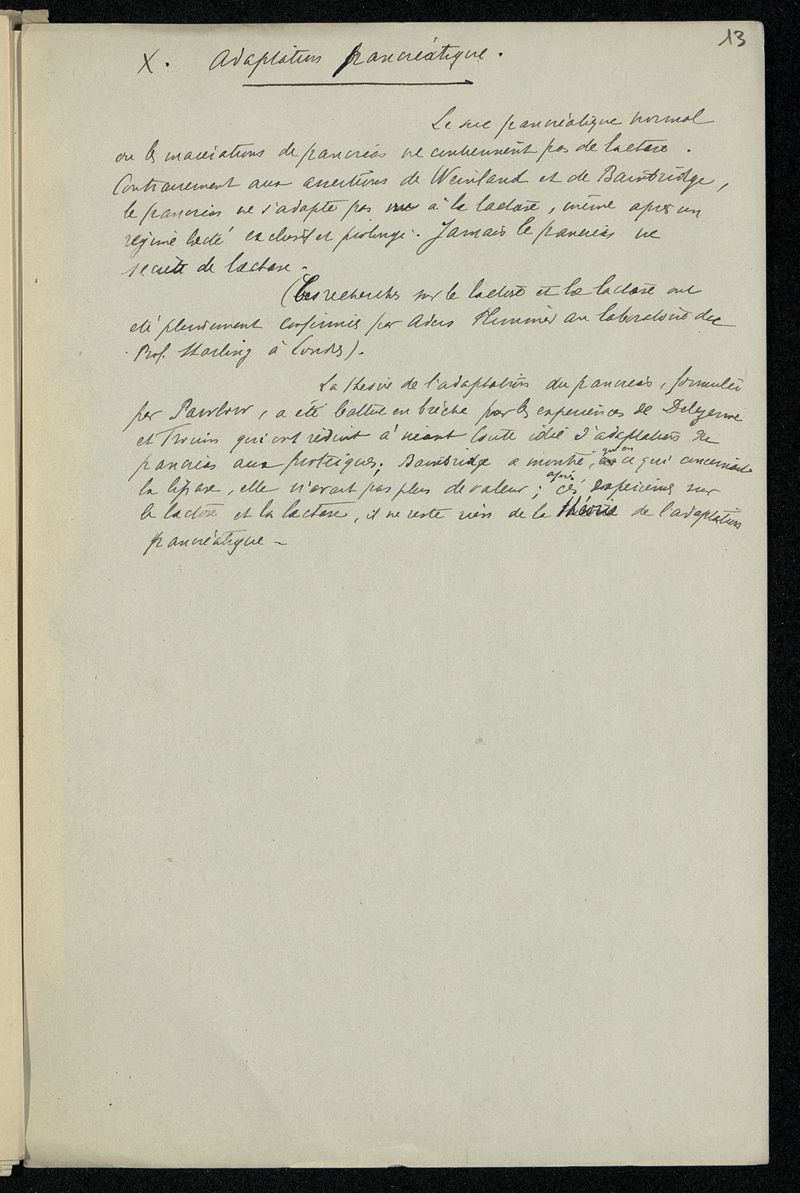 13
X. Adaptation pancréatique.
Le suc pancréatique normal
ou les macérations de pancréas ne contiennent pas de lactase.
Contrairement aux assertions de Weinland et de Bainbridge,
le pancréas ne s'adapte pas à la lactose, même après un
régime lacté exclusif et prolongé. Jamais le pancréas ne
secrète de lactase.
(Ces recherches sur le lactose et la lactase ont
été pleinement confirmées par Aders Plimmer au laboratoire du
Prof. Starling à Londres).
La théorie de l'adaptation du pancréas, formulée
par Pawlow, a été battue en brèche par les expériences de Delezenne
et Frouin qui ont réduit à néant toute idée d'adaptation du
pancréas aux protéiques; Bainbridge a montré, qu'en ce qui concernait
la lipase, elle n'avait pas plus de valeur; après ces expériences sur
le lactose et la lactase, il ne reste rien de la théorie de l'adaptation
pancréatique –